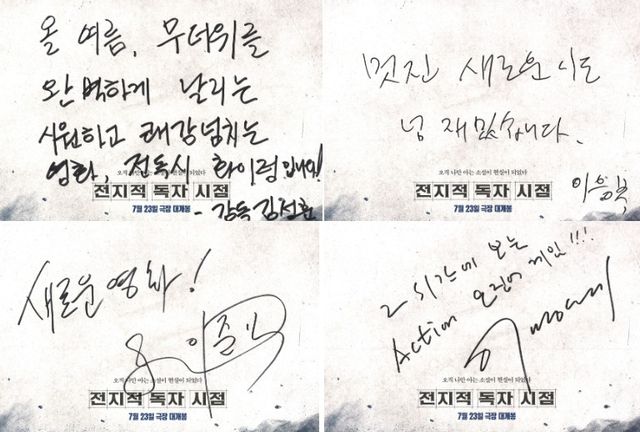 올 여름, 무더위를
완벽하게 날리는
시원하고 쾌감넘치는
영화, 전독시 화이링입니다!
오직 나만 아는 소설이 현실이 되었다
전지적 독자 시점
7월 23일 극장 대개봉
- 감독 김정훈
멋진 새로운 시도
넘 재밌습니다.
오직 나만 아는 소설이 현실이 되었다
전지적 독자 시점
7월 23일 극장 대개봉
새로운 영화!
이준익
오직 나만 아는 소설이 현실이 되었다
전지적 독자 시점
7월 23일 극장 대개봉
2시간에 보는
Action 오징어 게임!!!
오직 나만 아는 소설이 현실이 되었다
전지적 독자 시점
7월 23일 극장 대개봉